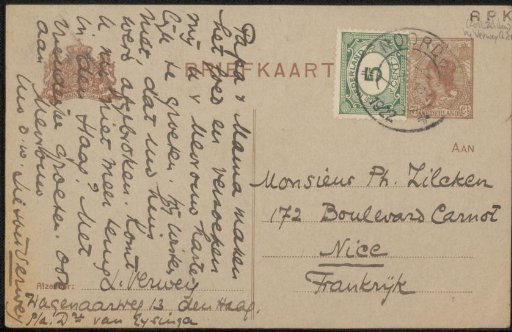 A P K
BRIEFKAART
NOORD
1922
NEDERLAND
5
CENT
NEDERLAND
AAN
Monsieur Ph. Zilcken
172 Boulevard Carnot
Nice
Frankrijk
Papa & Mama maken
het goed en verzoeken
mij U & Mevrouw harte-
lijk te groeten. Wij weten
niet dat Uw huis
werd afgebroken. Komt
U nu niet meer terug
in den Haag? Met
vriendelijke groeten ook
aan Mevrouw
Afzender:
L. Verwey
Wagenaarweg 13 den Haag.
p/a. Dr van Eysinga